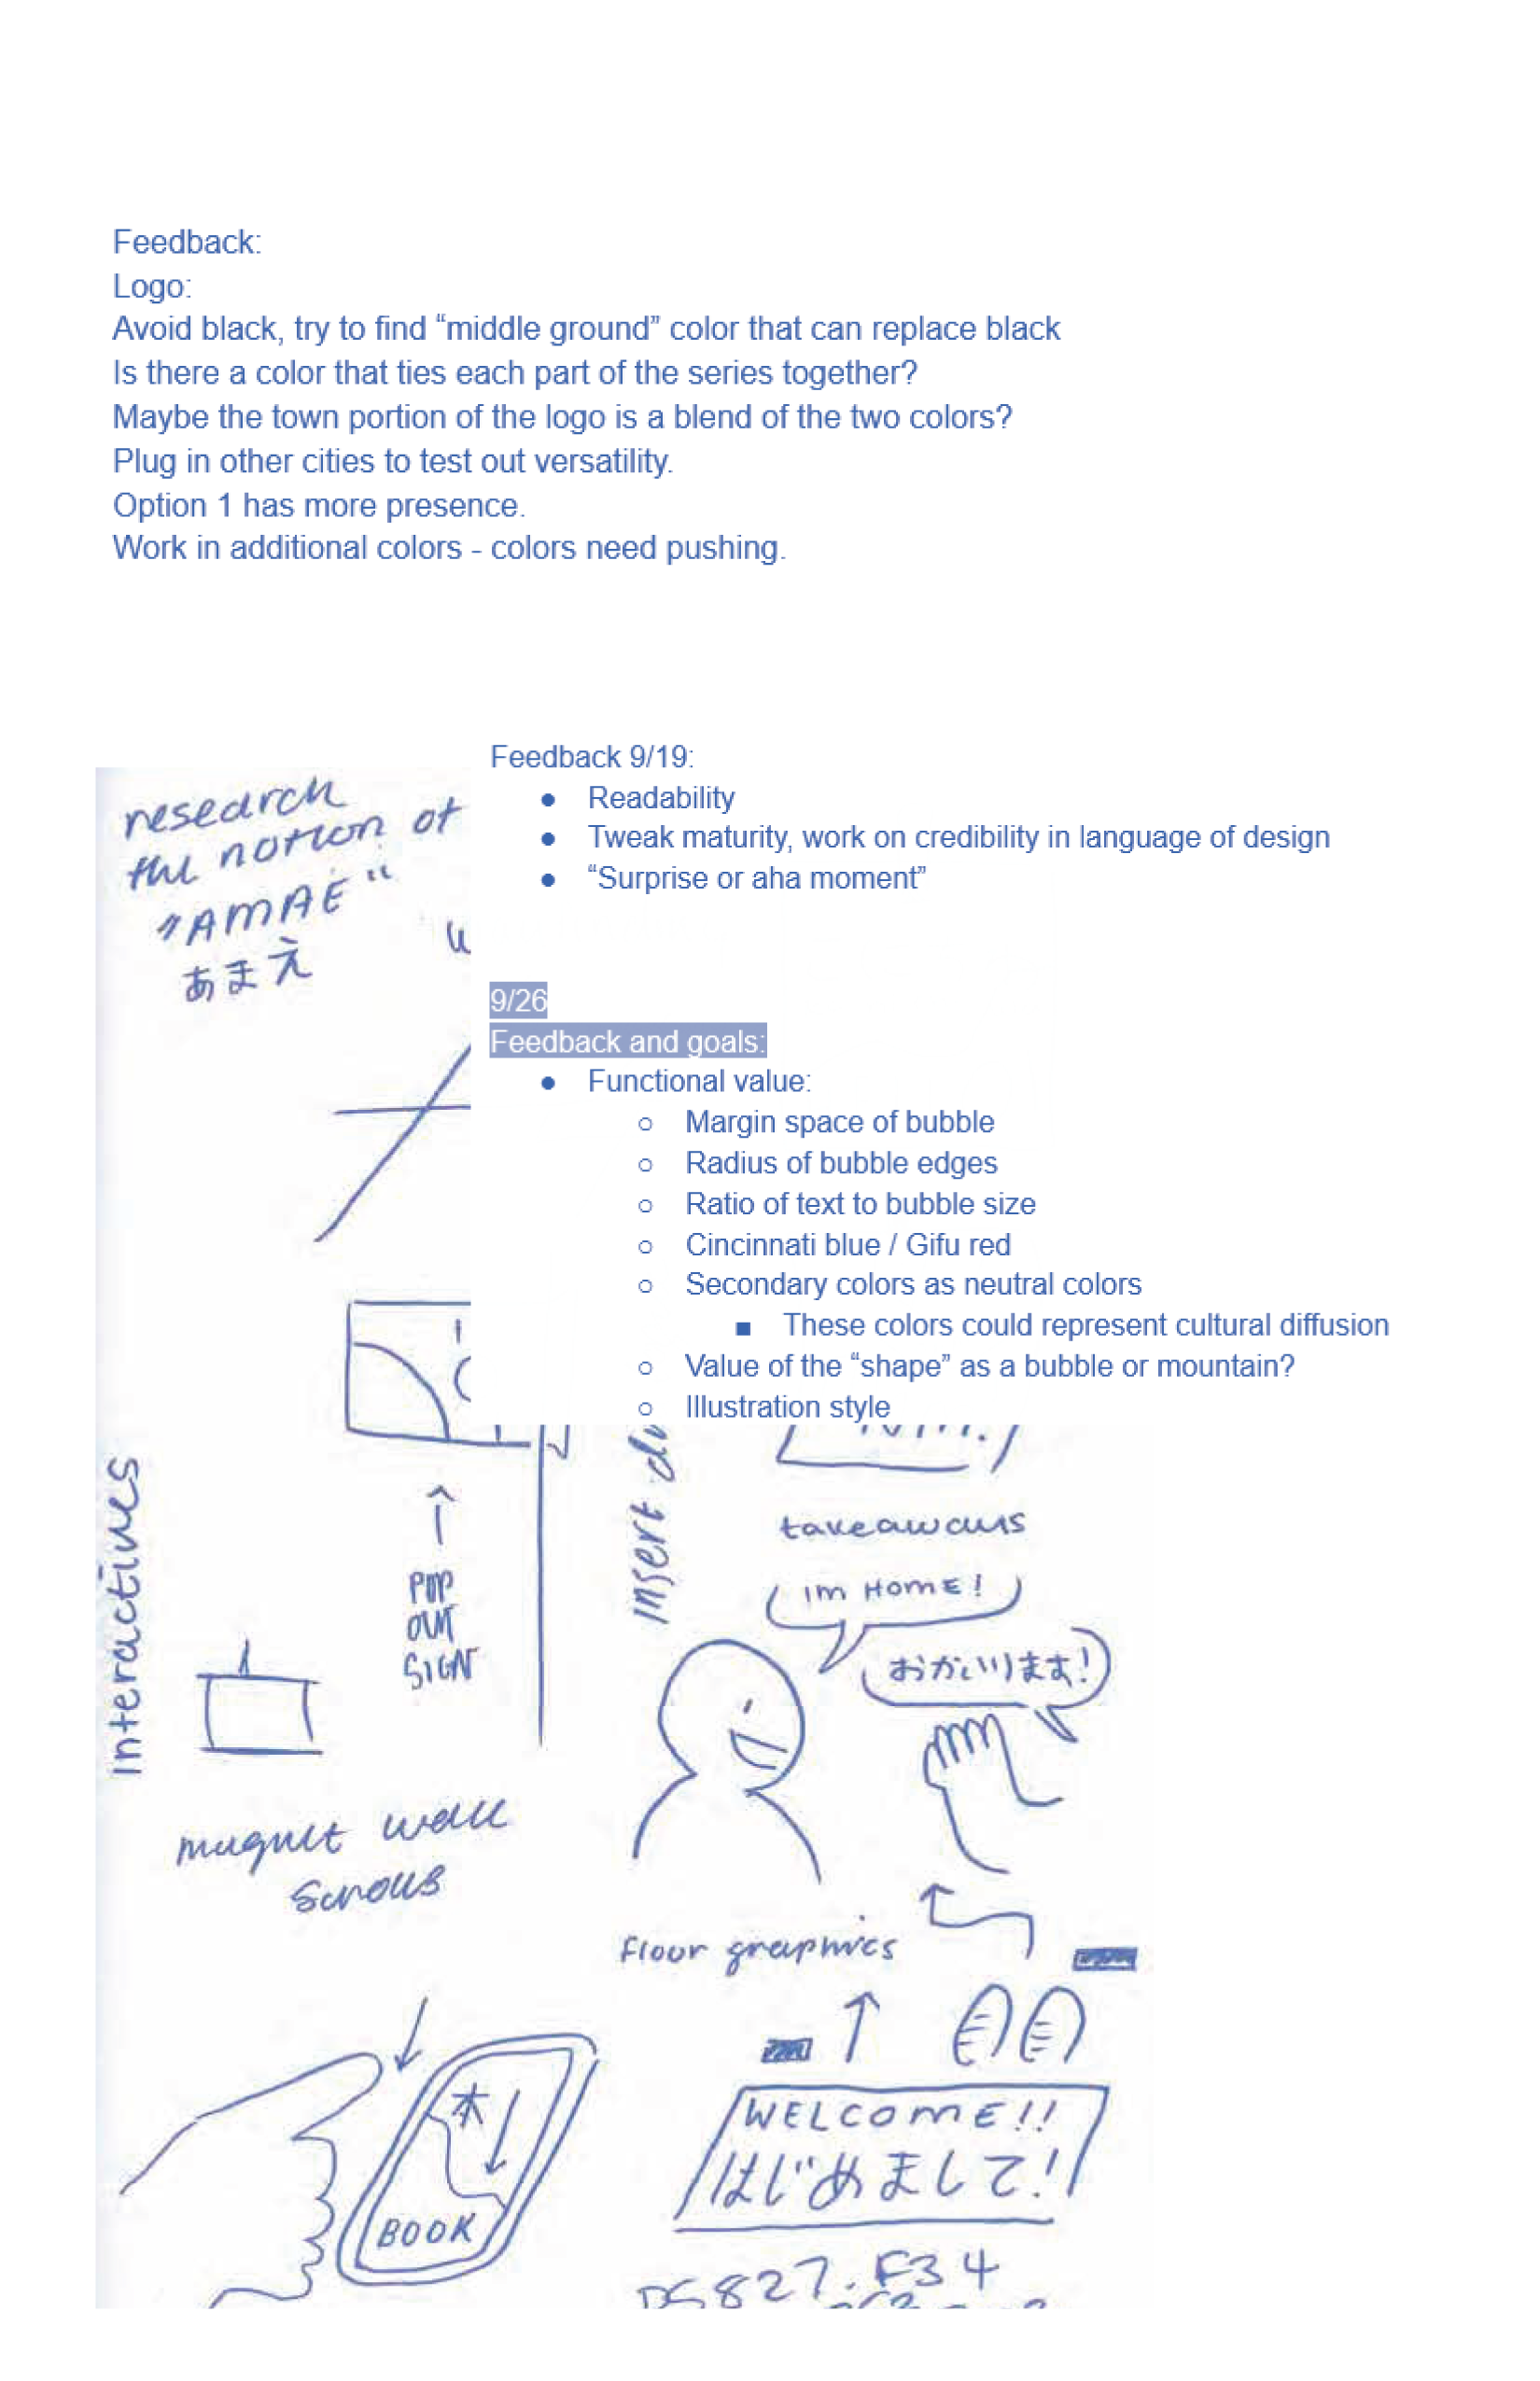 Feedback:
Logo:
Avoid black, try to find “middle ground” color that can replace black
Is there a color that ties each part of the series together?
Maybe the town portion of the logo is a blend of the two colors?
Plug in other cities to test out versatility.
Option 1 has more presence.
Work in additional colors - colors need pushing.
Feedback 9/19:
● Readability
● Tweak maturity, work on credibility in language of design
● “Surprise or aha moment”
9/26
Feedback and goals:
● Functional value:
○ Margin space of bubble
○ Radius of bubble edges
○ Ratio of text to bubble size
○ Cincinnati blue / Gifu red
○ Secondary colors as neutral colors
■ These colors could represent cultural diffusion
○ Value of the “shape” as a bubble or mountain?
○ Illustration style
research
the notion of
"AMAE"
あまえ
Interactives
POP
OUT
SIGN
insert
takeaways
IM HOME!
magnet wall
floor graphics
本
BOOK
WELCOME!!
はじめまして!
DS827.F34